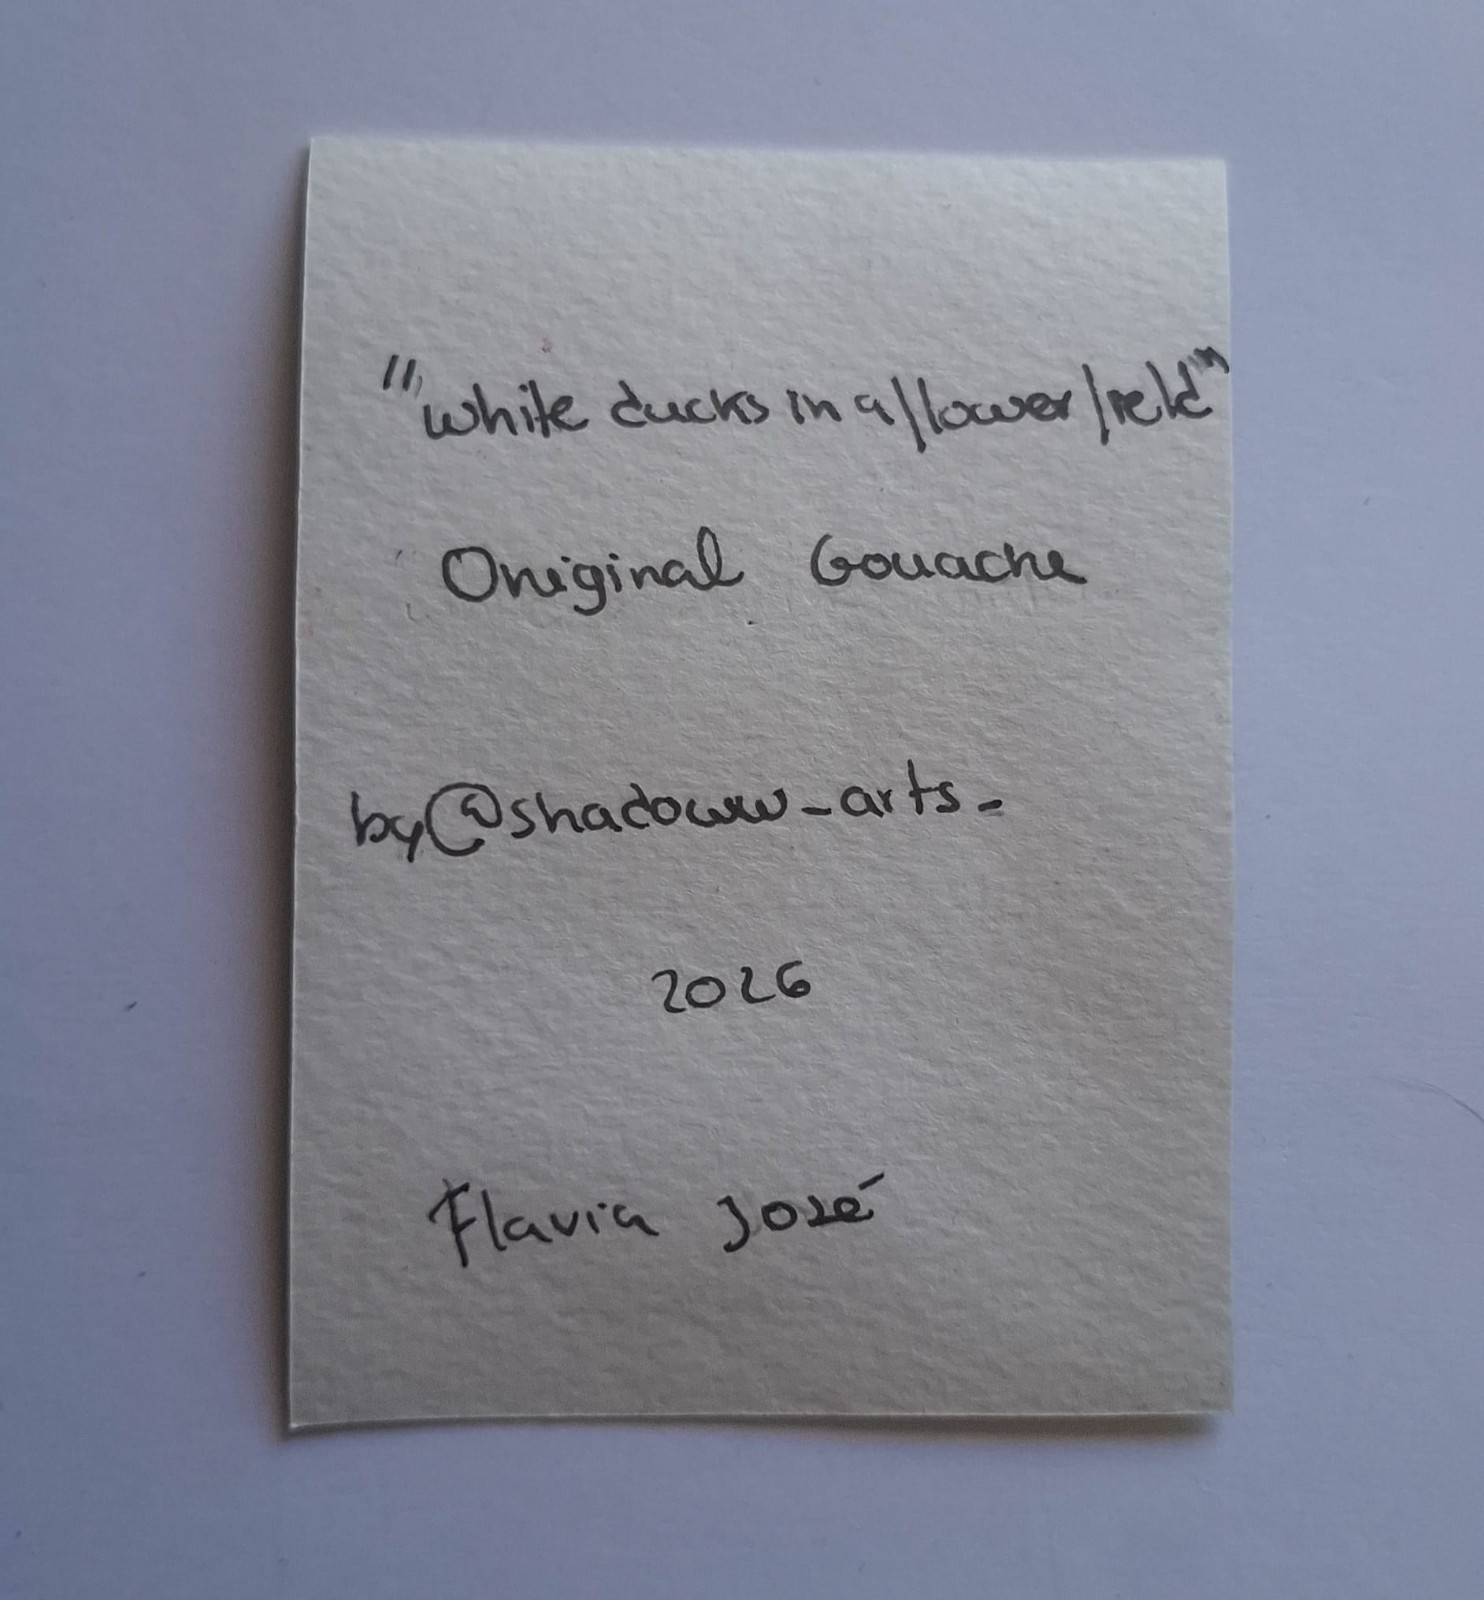 "white ducks in a flower field"
Original Gouache
by @shadoww_arts_
2026
Flavia José